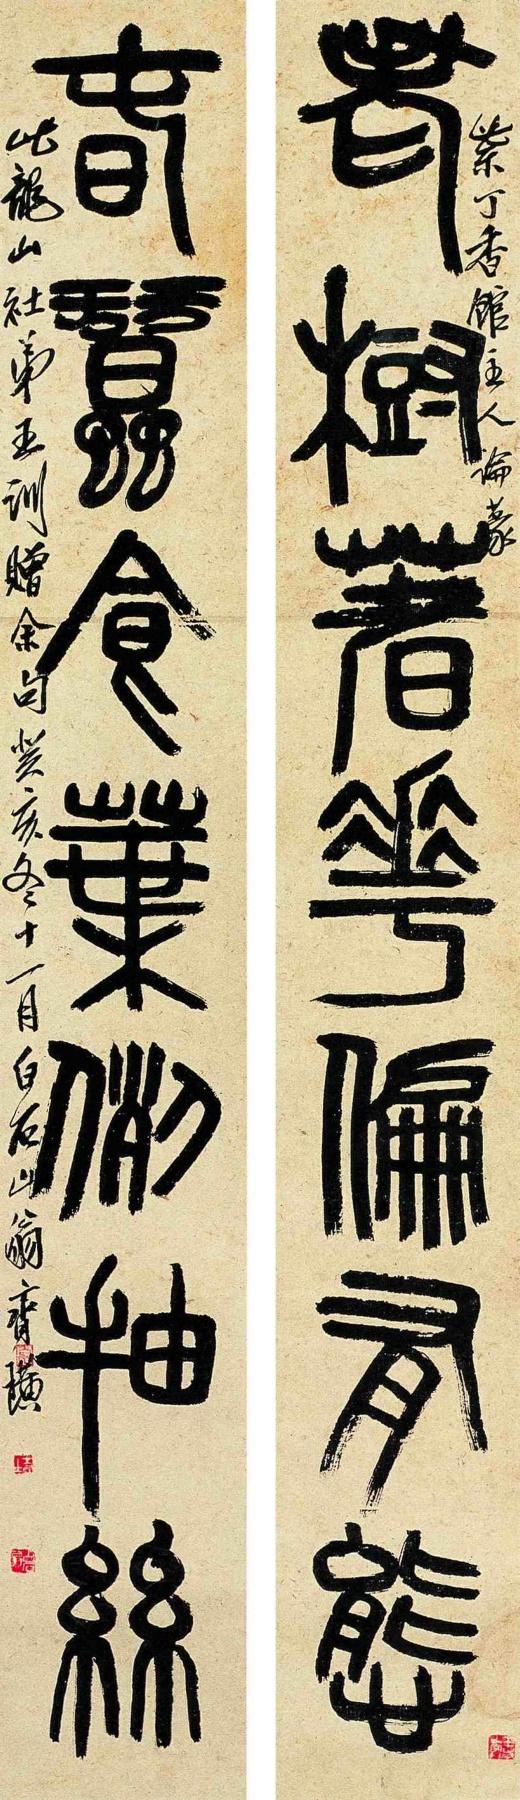 紫丁香館主人論篆
老樹著華偏有態
春蠶食葉例抽絲
此龍山社弟王訓贈余句癸亥冬十一月白石山翁齊璜